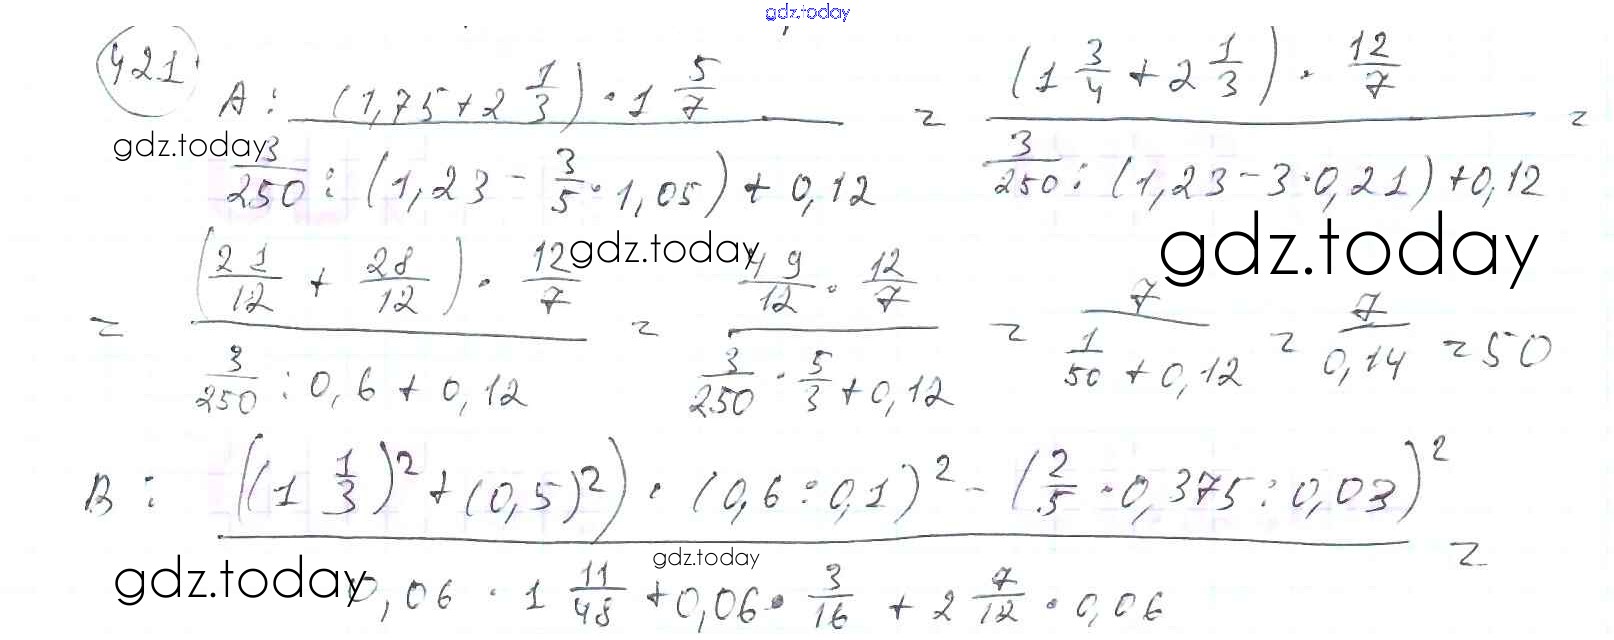 gdz.today
421
A: ((1,75+2 1/3) · 1 5/7) / (3/250 : (1,23 - 3/5 · 1,05) + 0,12) = ((1 3/4 + 2 1/3) · 12/7) / (3/250 : (1,23 - 3 · 0,21) + 0,12) =
gdz.today
gdz.today
gdz.today
= ((21/12 + 28/12) · 12/7) / (3/250 : 0,6 + 0,12) = (49/12 · 12/7) / (3/250 · 5/3 + 0,12) = 7 / (1/50 + 0,12) = 7/0,14 = 50
B: (((1 1/3)² + (0,5)²) · (0,6 : 0,1)² - (2/5 · 0,375 : 0,03)²) / (0,06 · 1 11/48 + 0,06 · 3/16 + 2 7/12 · 0,06) =
gdz.today
gdz.today